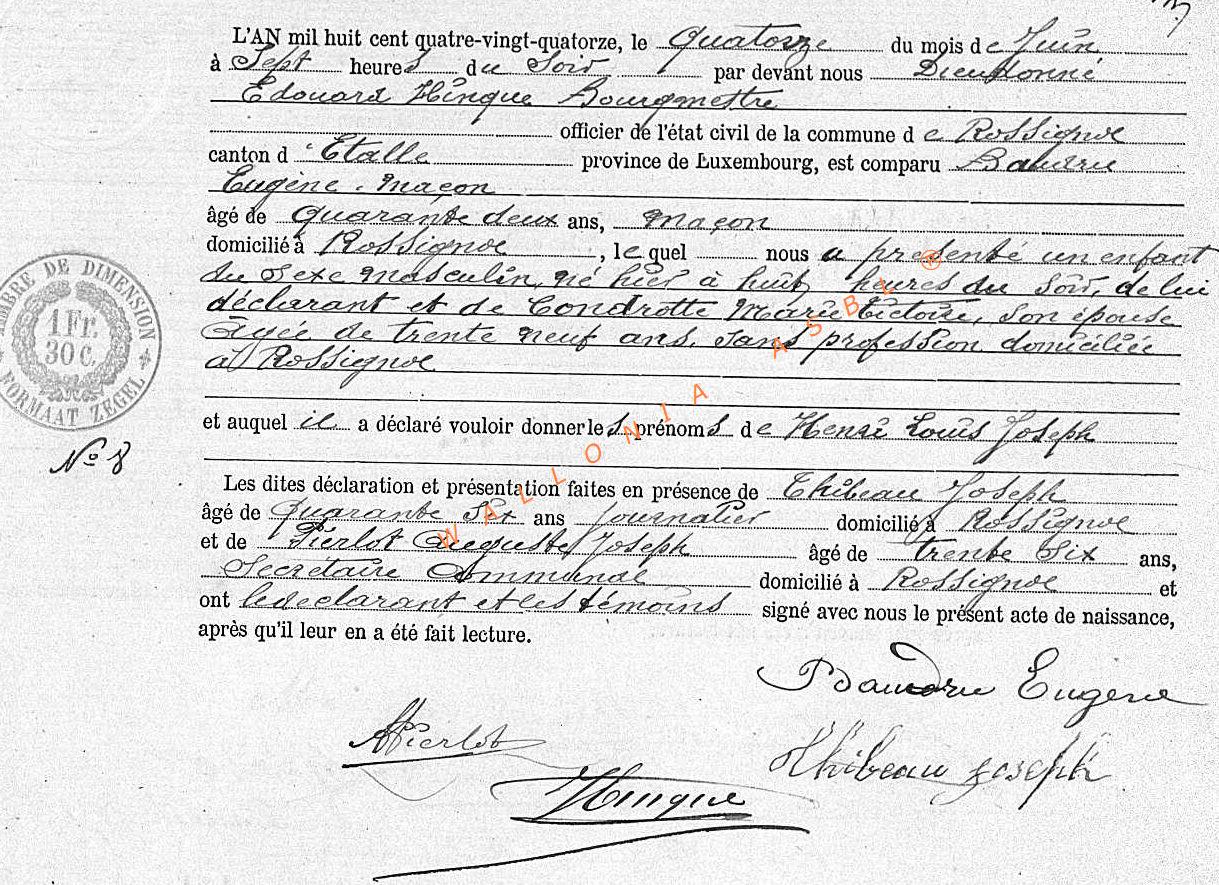 L'AN mil huit cent quatre-vingt-quatorze, le Quatorze du mois de Juin
à Sept heures du Soir par devant nous Dieudonné
Edouard Hinque Bourgmestre
officier de l'état civil de la commune de Rossignol
canton d'Etalle province de Luxembourg, est comparu Baudru
Eugène. Maçon
âgé de Quarante deux ans, Maçon
domicilié à Rossignol, lequel nous a présenté un enfant
du Sexe masculin, né hier à huit heures du Soir, de lui
déclarant et de Condrotte Marie Victoire, Son épouse
Agée de trente neuf ans, Sans profession domiciliée
à Rossignol
et auquel il a déclaré vouloir donner les prénoms de Henri Louis Joseph
N° 8
Les dites déclaration et présentation faites en présence de Thibeau Joseph
âgé de Quarante Six ans Journalier domicilié à Rossignol
et de Pierlot Auguste Joseph âgé de trente Six ans,
Secrétaire Communal domicilié à Rossignol et
ont le declarant et les témoins signé avec nous le présent acte de naissance,
après qu'il leur en a été fait lecture.
Baudru Eugène
APierlot
Thibeau Joseph
Hinque
TIMBRE DE DIMENSION
1 Fr.
30 C.
FORMAAT ZEGEL
WALLONIA ASBL ®